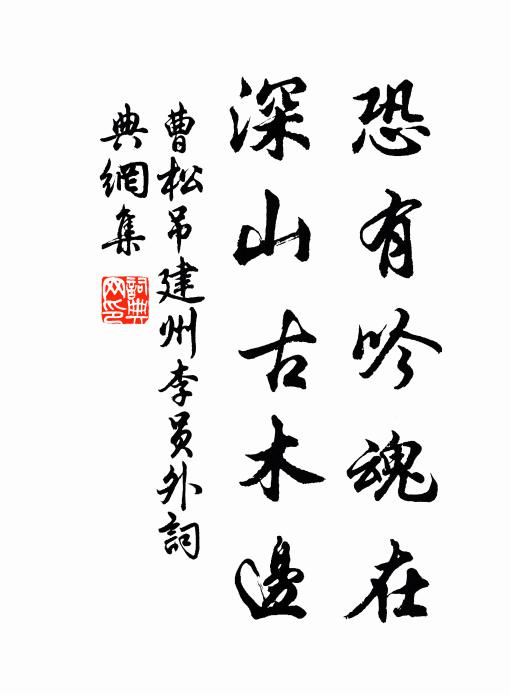 恐有吟魂在
深山古木邊
曹松吊建州李員外詞
典網集
詞典
网印